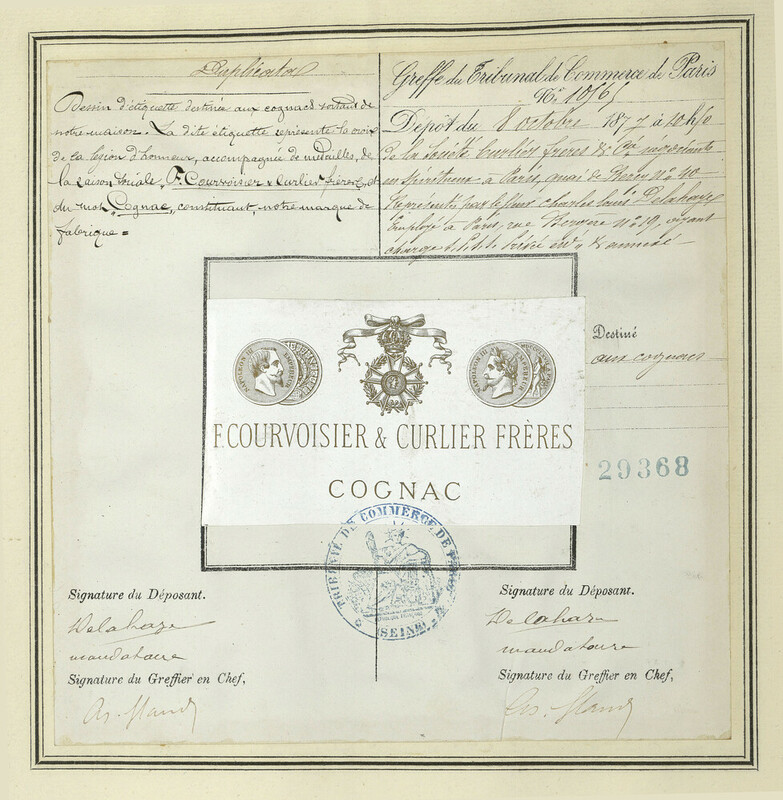 Duplicata
Dessin d'étiquette destinée aux cognacs sortant de
notre maison. La dite étiquette représente la croix
de la légion d'honneur, accompagnée de médailles, de
la raison sociale, F. Courvoisier & Curlier frères, et
du mot Cognac, constituant, notre marque de
fabrique =
Greffe du Tribunal de Commerce de Paris
No. 10565
Dépôt du 8 octobre 1877 à 10h/0
de la société Curlier frères & Cie négociants
en spiritueux à Paris, quai de Bercy no 40
Représentée par le sieur Charles Louis Delahaye
Employé à Paris, rue Bergère no 19, ayant
charge
NAPOLEON III EMPEREUR
NAPOLEON III EMPEREUR
F. COURVOISIER & CURLIER FRÈRES
COGNAC
Destiné
aux cognacs
29368
TRIBUNAL DE COMMERCE DE PARIS
(SEINE)
Signature du Déposant.
Delahaye
mandataire
Signature du Greffier en Chef,
Signature du Déposant.
Delahaye
mandataire
Signature du Greffier en Chef,